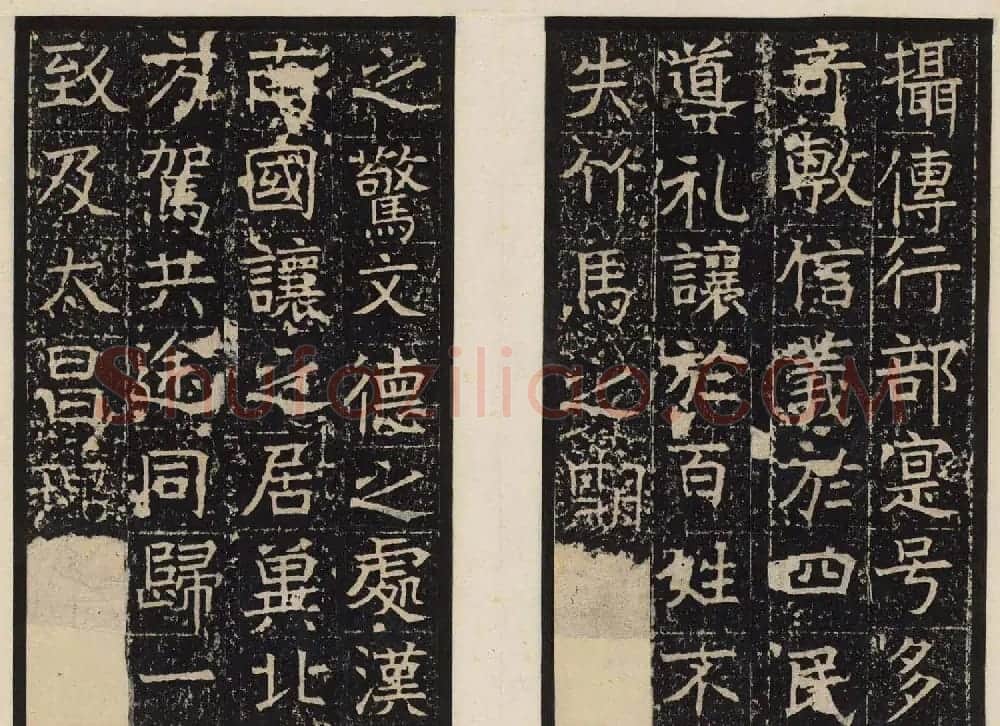 攝傳行部寔号多
奇敷信義於四民
導礼讓於百姓不
失竹馬之期
之驚文德之處漢
南國讓之居冀北
方駕共治同歸一
致及太昌
Shufaziliao.COM